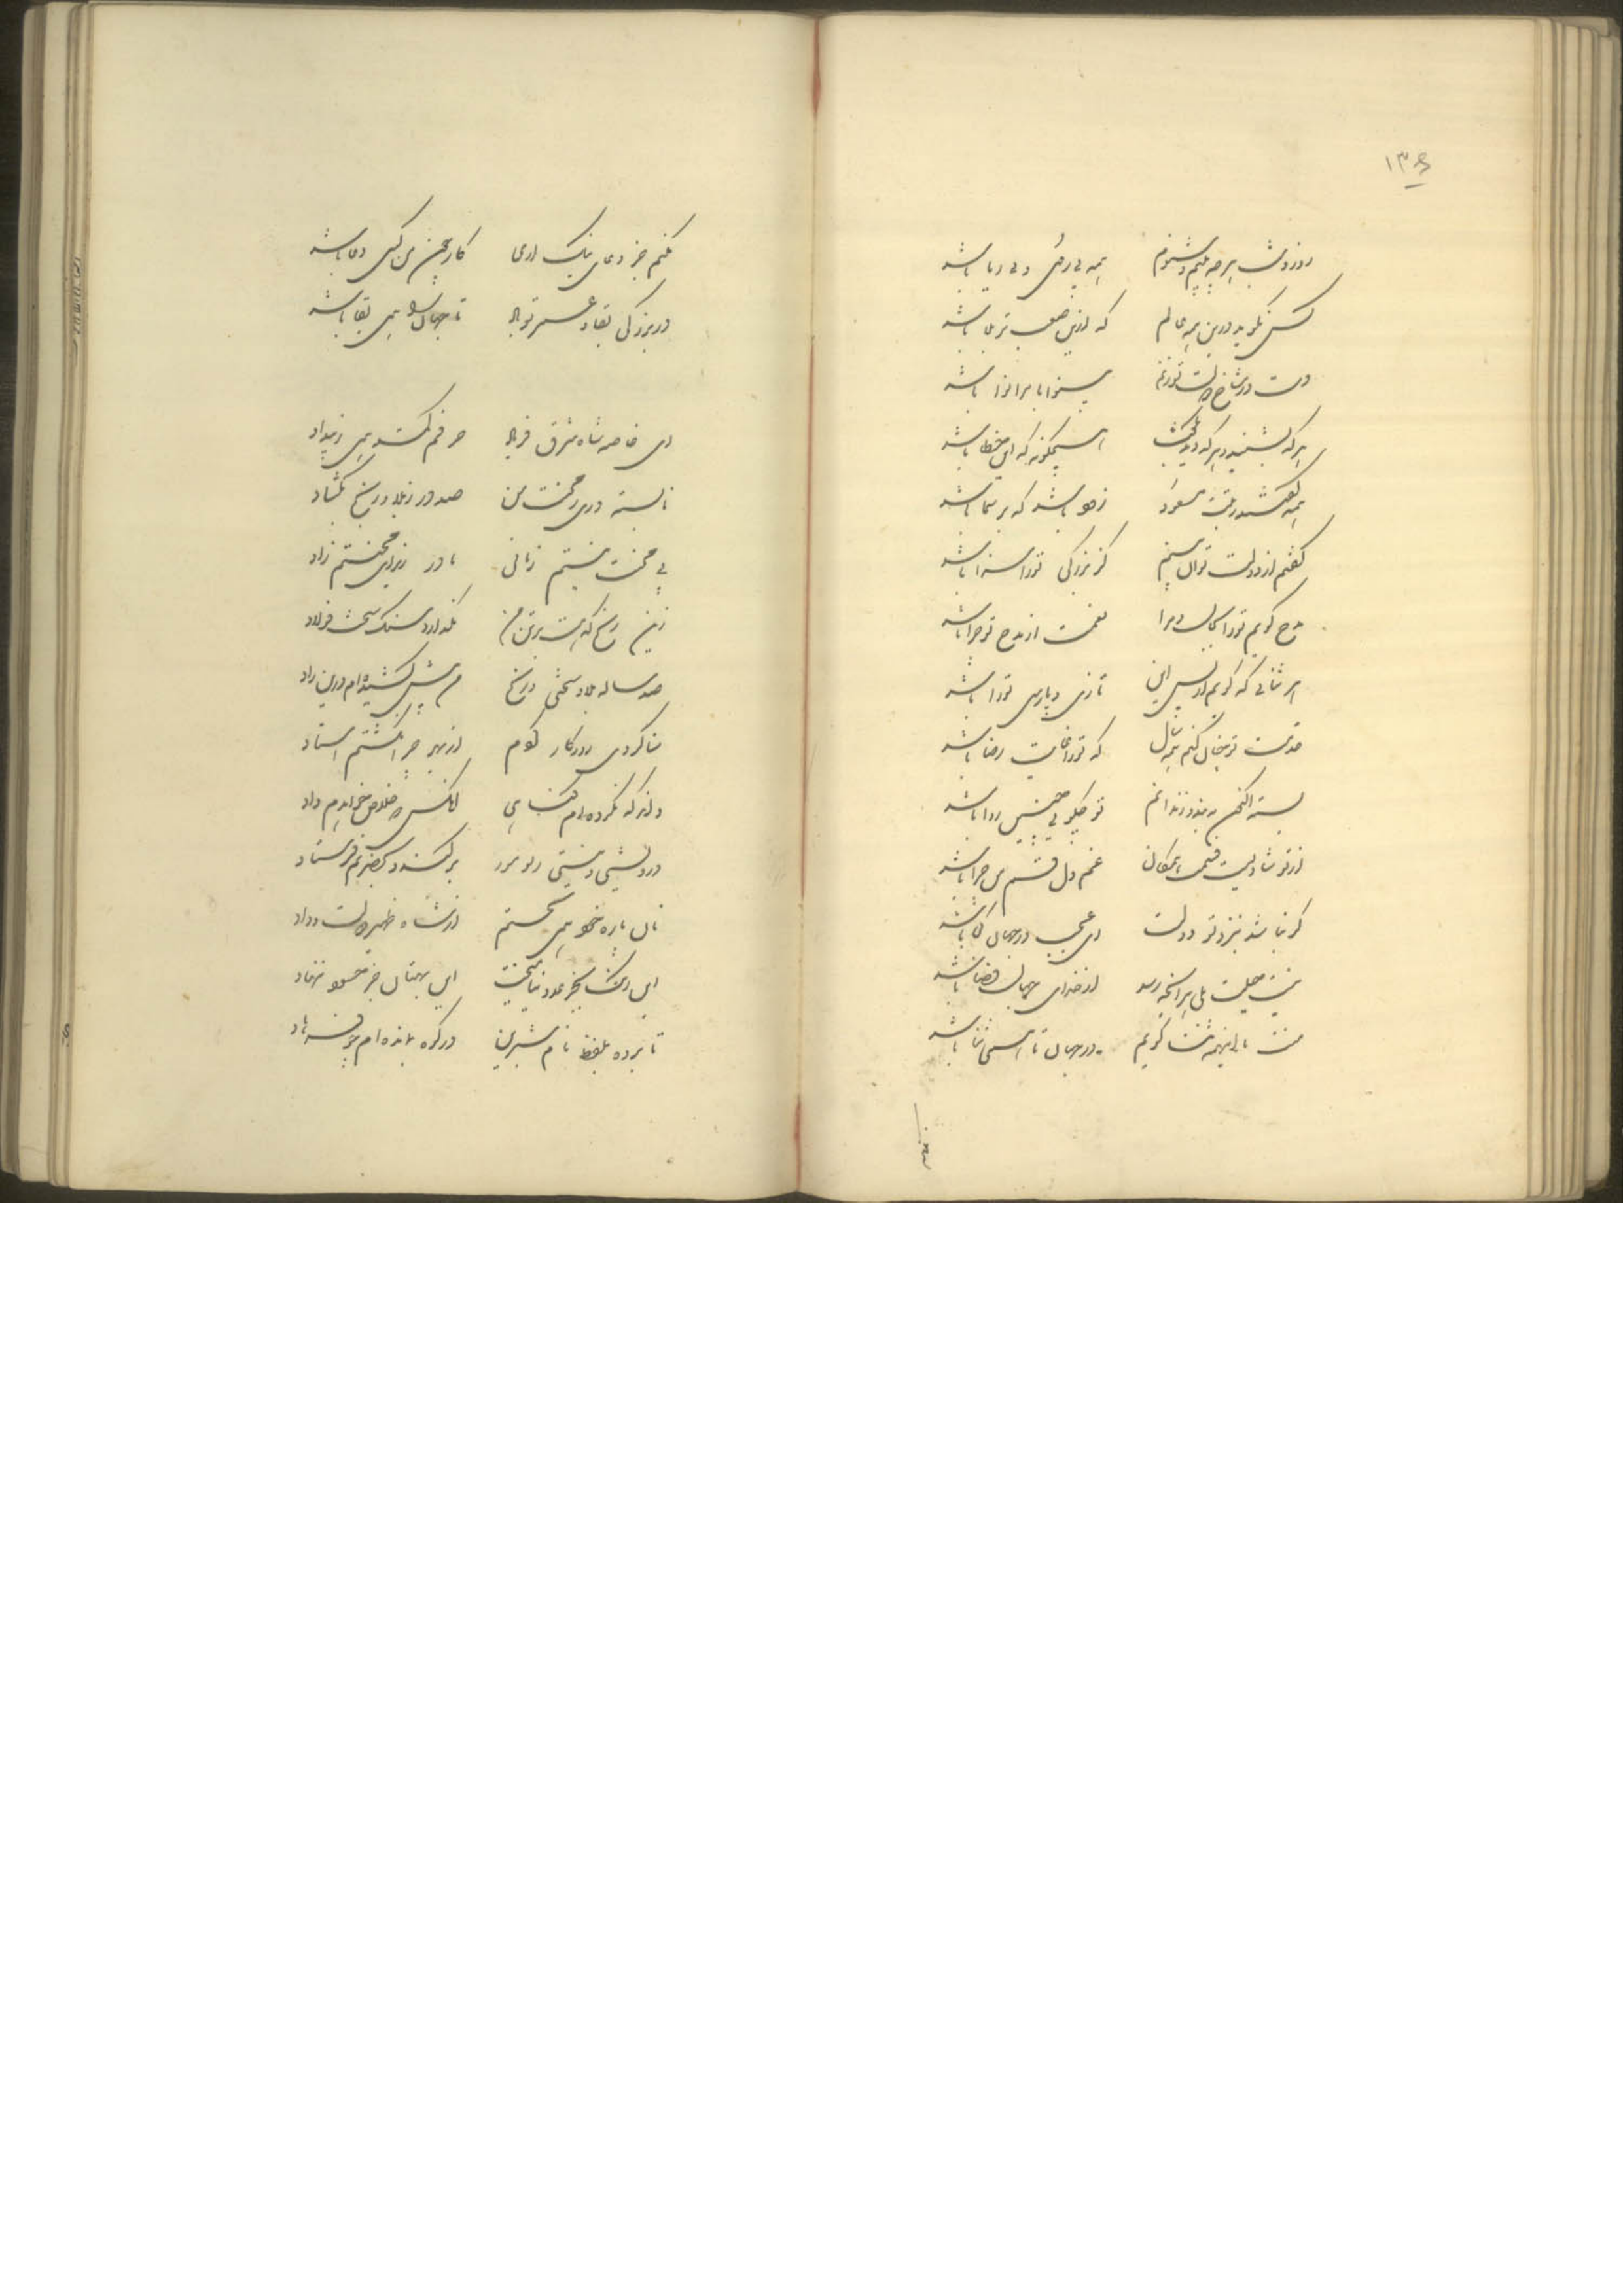 ۱۳۶
روز و شب هر چه بینم و شنوم همه بی روی و بی ریا باشد
کس نگوید درین همه عالم که ازین صعب تر بلا باشد
دست در شاخ دولت تو زنم بینوا با بر و نوا باشد
هر که بشنید و هر که دید بگفت اینچگونه که این خطا باشد
همه گفتند بخت مسعود زهو باشد که بر سما باشد
گفتم از دولت تو آن بینم کز بزرگی تو را سزا باشد
مدح گویم تو را بجان و مرا نعمت از مدح تو چرا باشد
هر ثنائی که گویم از پس این تازی و پارسی تو را باشد
خدمت تو بجان کنم همه سال که تو را غایت رضا باشد
بسته اکنون به بند و زندانم تو چگویی چنین روا باشد
از تو شادیست قسمت همگان غم دل قسم من چرا باشد
گر نباشد بنزد تو دولت ای عجب در جهان کجا باشد
نیست حیلت بلی هر آنچه رسد از خدای جهان قضا باشد
منت با اینهمه ثنات گویم در جهان تا اسم ثنا باشد
نکنم جز دعای نیک آری کار چون من کسی دعا باشد
در بزرگی بقاء عمر تو باد تا جهان را همی بقا باشد
ای خاصه شاه شرق فریاد چرخم بکشد همی ز بیداد
نابسته دری ز محنت من صد در ز بلا و رنج بگشاد
بی محنت نیستم زمانی مادر ز برای محنتم زاد
زین رنج که هست بر تن من بگدازد سنگ سخت و فولاد
صد ساله بلا و سختی و رنج من بیش کشیده ام درین راد
شاگردی روزگار کردم از بهر چرا نگشتم استاد
و آنرا که نکرده ام گناهی آنکس چه خلاص خواهدم داد
درویشی و نیستی ز لوهور برکند و بحضرتم فرستاد
نان پاره خود همی بجستم از شاه ظهیر دولت و داد
این رنگ بجز عدو نیامیخت این بهتان جز حسود ننهاد
نابرده بلفظ نام شیرین در کوه بمانده ام چو فرهاد